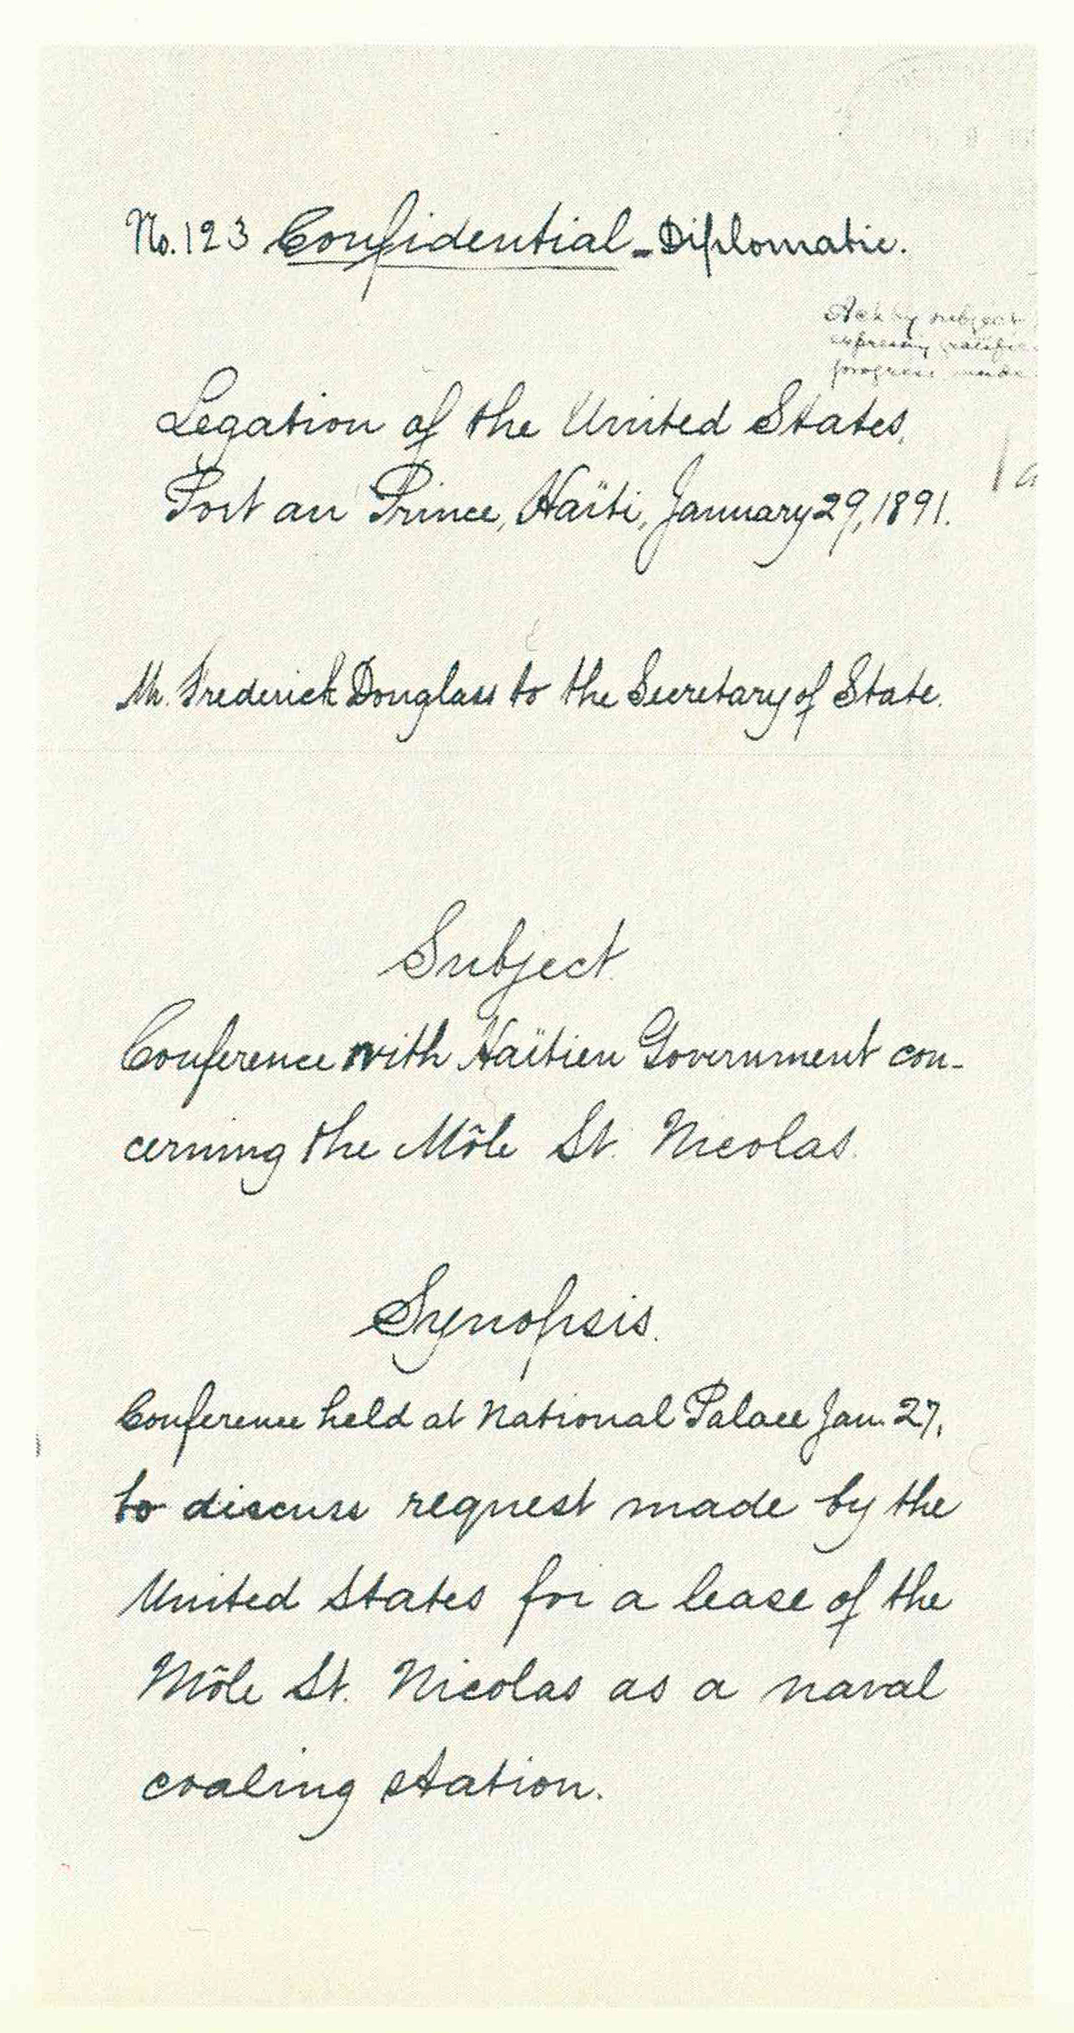 No. 123 Confidential - Diplomatic.
Ack by subject
expressing
progress made
Legation of the United States,
Port au Prince, Haïti, January 29, 1891.
Mr. Frederick Douglass to the Secretary of State.
Subject.
Conference with Haïtien Government con-
cerning the Môle St. Nicolas.
Synopsis.
Conference held at National Palace Jan. 27,
to discuss request made by the
United States for a lease of the
Môle St. Nicolas as a naval
coaling station.